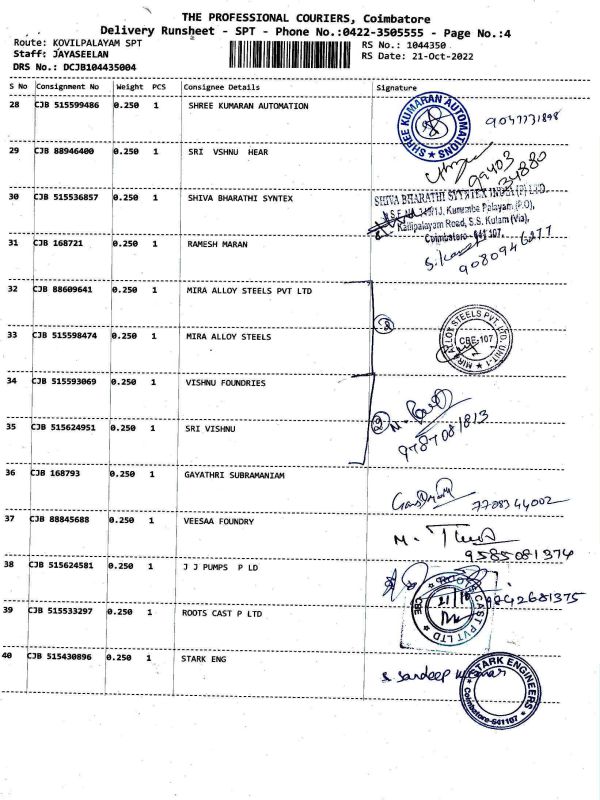 THE PROFESSIONAL COURIERS, Coimbatore
Delivery Runsheet - SPT - Phone No.:0422-3505555 - Page No.:4
Route: KOVILPALAYAM SPT
RS No.: 1044350
Staff: JAYASEELAN
RS Date: 21-Oct-2022
DRS No.: DCJB104435004
S No Consignment No Weight PCS Consignee Details Signature
28 CJB 515599486 0.250 1 SHREE KUMARAN AUTOMATION
SHREE KUMARAN AUTOMATIONS
29 CJB 88946400 0.250 1 SRI VSHNU HEAR
99403
34880
30 CJB 515536857 0.250 1 SHIVA BHARATHI SYNTEX
SHIVA BHARATHI SYNTEX INDIA (P) LTD
Kurumba Palayam (P.O),
Kalipalayam Road, S.S. Kulam (Via),
Coimbatore-641 107.
31 CJB 168721 0.250 1 RAMESH MARAN
9080946277
32 CJB 88609641 0.250 1 MIRA ALLOY STEELS PVT LTD
33 CJB 515598474 0.250 1 MIRA ALLOY STEELS
MIRA ALLOY STEELS PVT. LTD. UNIT-1
CBE-107
34 CJB 515593069 0.250 1 VISHNU FOUNDRIES
35 CJB 515624951 0.250 1 SRI VISHNU
2
9787081813
36 CJB 168793 0.250 1 GAYATHRI SUBRAMANIAM
7708344002
37 CJB 88845688 0.250 1 VEESAA FOUNDRY
9585081374
38 CJB 515624581 0.250 1 J J PUMPS P LD
9842681375
39 CJB 515533297 0.250 1 ROOTS CAST P LTD
CAST PVT LTD
CBE
40 CJB 515430896 0.250 1 STARK ENG
S. Sandeep Kumar
STARK ENGINEERS
Coimbatore-641107